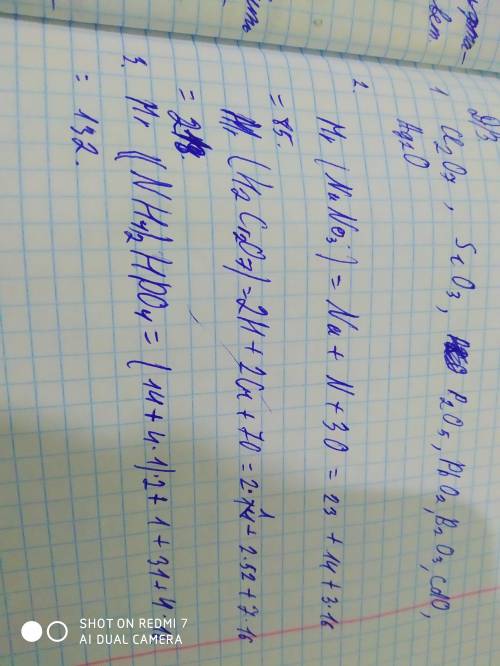 Д/з
1. Cl2O7, SiO3, P2O5, PbO2, B2O3, CdO,
Ag2O
2. Mr (NaNo3) = Na + N + 3O = 23 + 14 + 3·16
= 85.
Mr (H2Cr2O7) = 2H + 2Cr + 7O = 2·1 + 2·52 + 7·16
= 218.
3. Mr ((NH4)2HPO4 = (14 + 4·1)·2 + 1 + 31 + 4
= 132.
SHOT ON REDMI 7
AI DUAL CAMERA